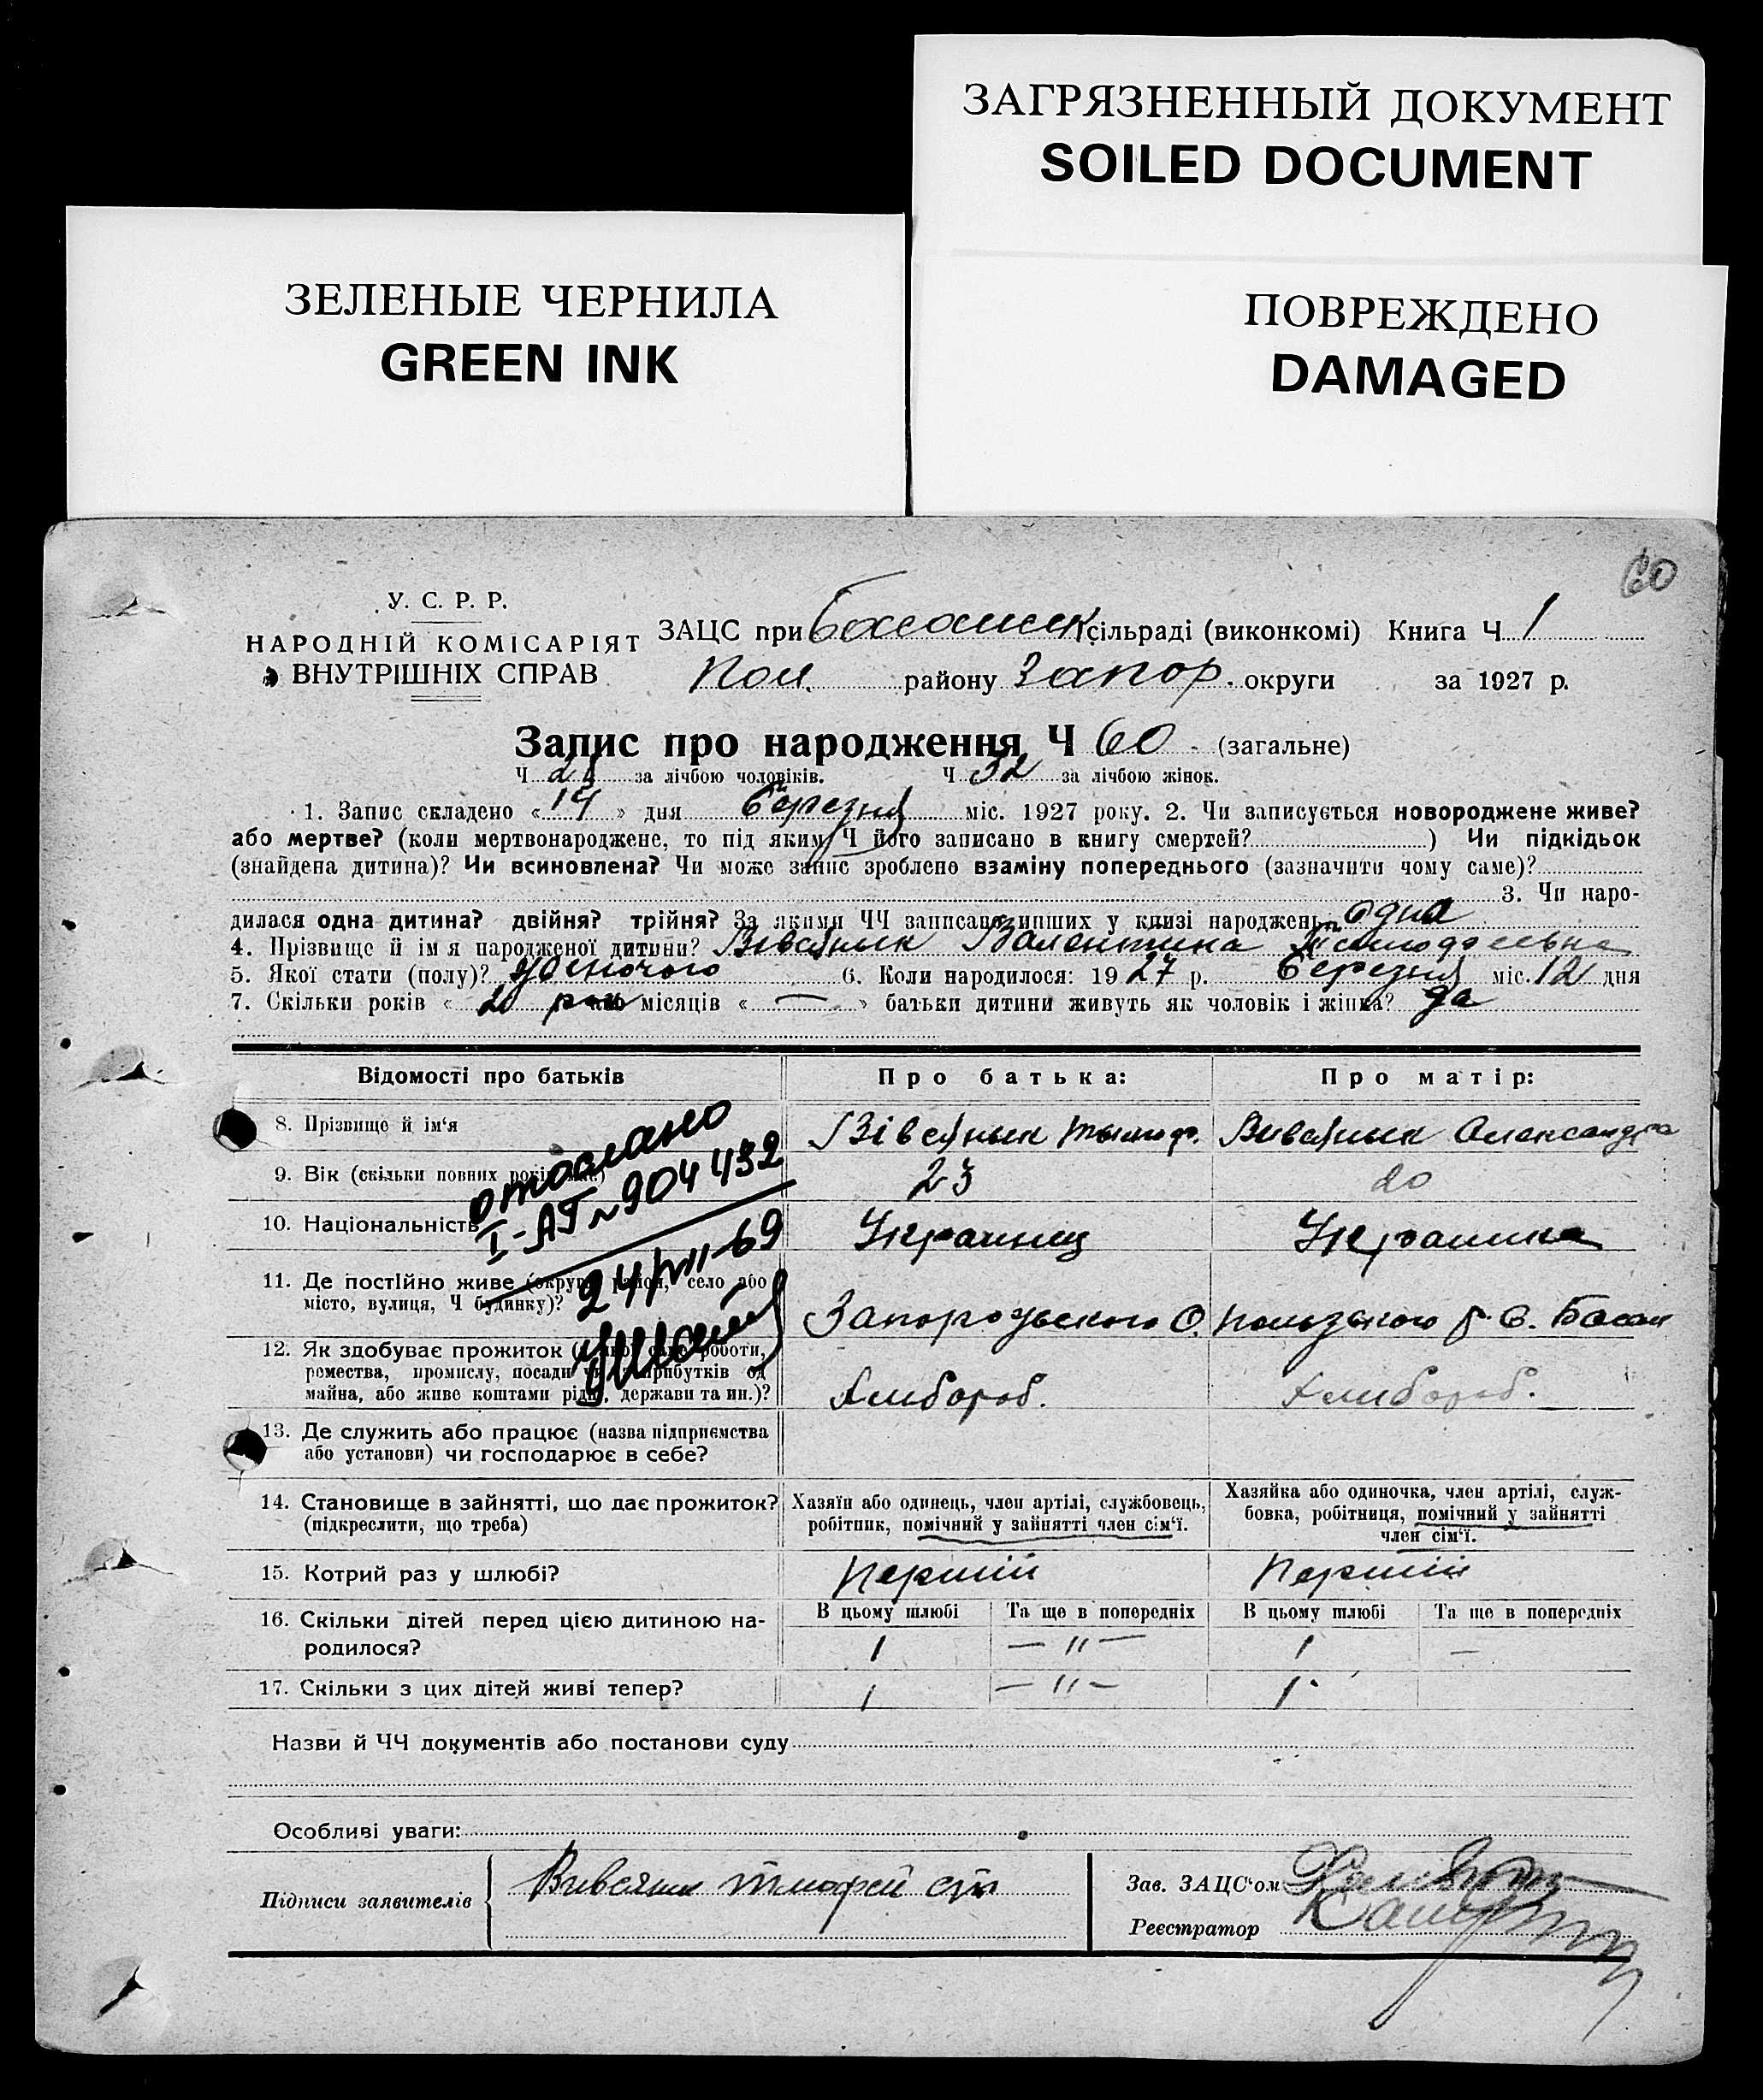 ЗАГРЯЗНЕННЫЙ ДОКУМЕНТ
SOILED DOCUMENT
ЗЕЛЕНЫЕ ЧЕРНИЛА
GREEN INK
ПОВРЕЖДЕНО
DAMAGED
60
У. С. Р. Р.
НАРОДНІЙ КОМІСАРІЯТ
ВНУТРІШНІХ СПРАВ
ЗАЦС при сільраді (виконкомі) Книга Ч 1
Пол. району Запор. округи за 1927 р.
Запис про народження Ч 60 (загальне)
Ч за лічбою чоловіків. Ч 32 за лічбою жінок.
1. Запис складено « » дня березня міс. 1927 року. 2. Чи записується новороджене живе?
або мертве? (коли мертвонароджене, то під яким Ч його записано в книгу смертей? ) Чи підкідьок
(знайдена дитина)? Чи всиновлена? Чи може запис зроблено взаміну попереднього (зазначити чому саме)?
3. Чи наро-
дилася одна дитина? двійня? трійня? За якими ЧЧ записано инших у книзі народжень одна
4. Прізвище й ім'я народженої дитини? Валентина
5. Якої стати (полу)? жіночого 6. Коли народилося: 1927 р. березня міс. 12 дня
7. Скільки років « 2 » місяців « — » батьки дитини живуть як чоловік і жінка? да
Відомості про батьків
Про батька:
Про матір:
8. Прізвище й ім'я
Олександра
9. Вік (скільки повних років має)
23
20
10. Національність
Украинец
Украинка
отослано
I-АП № 904432
24/VII-69
11. Де постійно живе (округа, район, село або
місто, вулиця, Ч будинку)?
Запорожського О.
12. Як здобуває прожиток (з якої саме роботи,
ремества, промислу, посади чи з прибутків од
майна, або живе коштами рідні, держави та ин.)?
Хлибороб.
Хлибороб.
13. Де служить або працює (назва підприємства
або установи) чи господарює в себе?
14. Становище в зайнятті, що дає прожиток?
(підкреслити, що треба)
Хазяїн або одинець, член артілі, службовець,
робітник, помічний у зайнятті член сім'ї.
Хазяйка або одиночка, член артілі, служ-
бовка, робітниця, помічний у зайнятті
член сім'ї.
15. Котрий раз у шлюбі?
Перший
Перший
16. Скільки дітей перед цією дитиною на-
родилося?
В цьому шлюбі
Та ще в попередніх
В цьому шлюбі
Та ще в попередніх
1
— " —
1
—
17. Скільки з цих дітей живі тепер?
1
— " —
1
Назви й ЧЧ документів або постанови суду
Особливі уваги:
Підписи заявителів
Зав. ЗАЦС'ом
Реєстратор